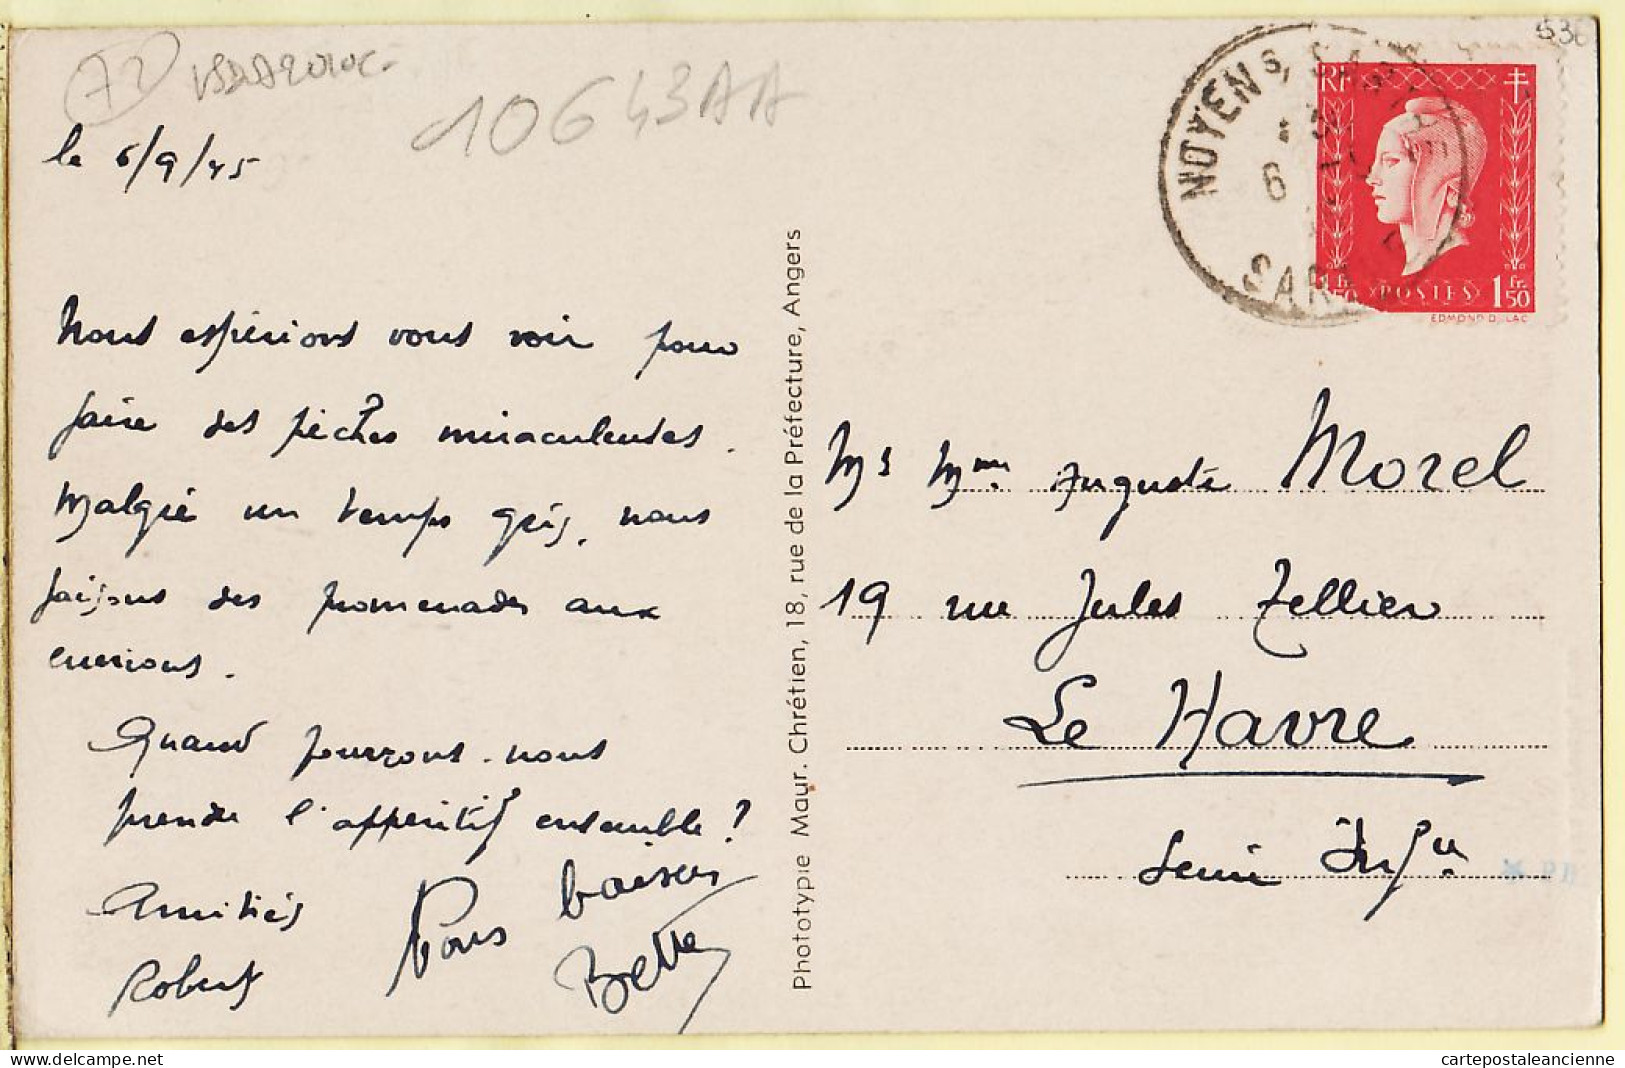 536
72
10643AA
le 6/9/45
NOYEN S/ SARTHE
6
SARTHE
RF
1 fr. 50 POSTES 1 fr. 50
EDMOND DULAC
Nous espérions vous voir pour
faire des pêches miraculeuses.
Malgré un temps gris, nous
faisons des promenades aux
environs.
Quand pourrons-nous
prendre l'apperitif ensemble ?
Amitiés
Robert
Bons baisers
Betty
Phototypie Maur. Chrétien, 18, rue de la Préfecture, Angers
Mr Mme Auguste Morel
19 rue Jules Tellier
Le Havre
Seine Infre
cartepostaleancienne